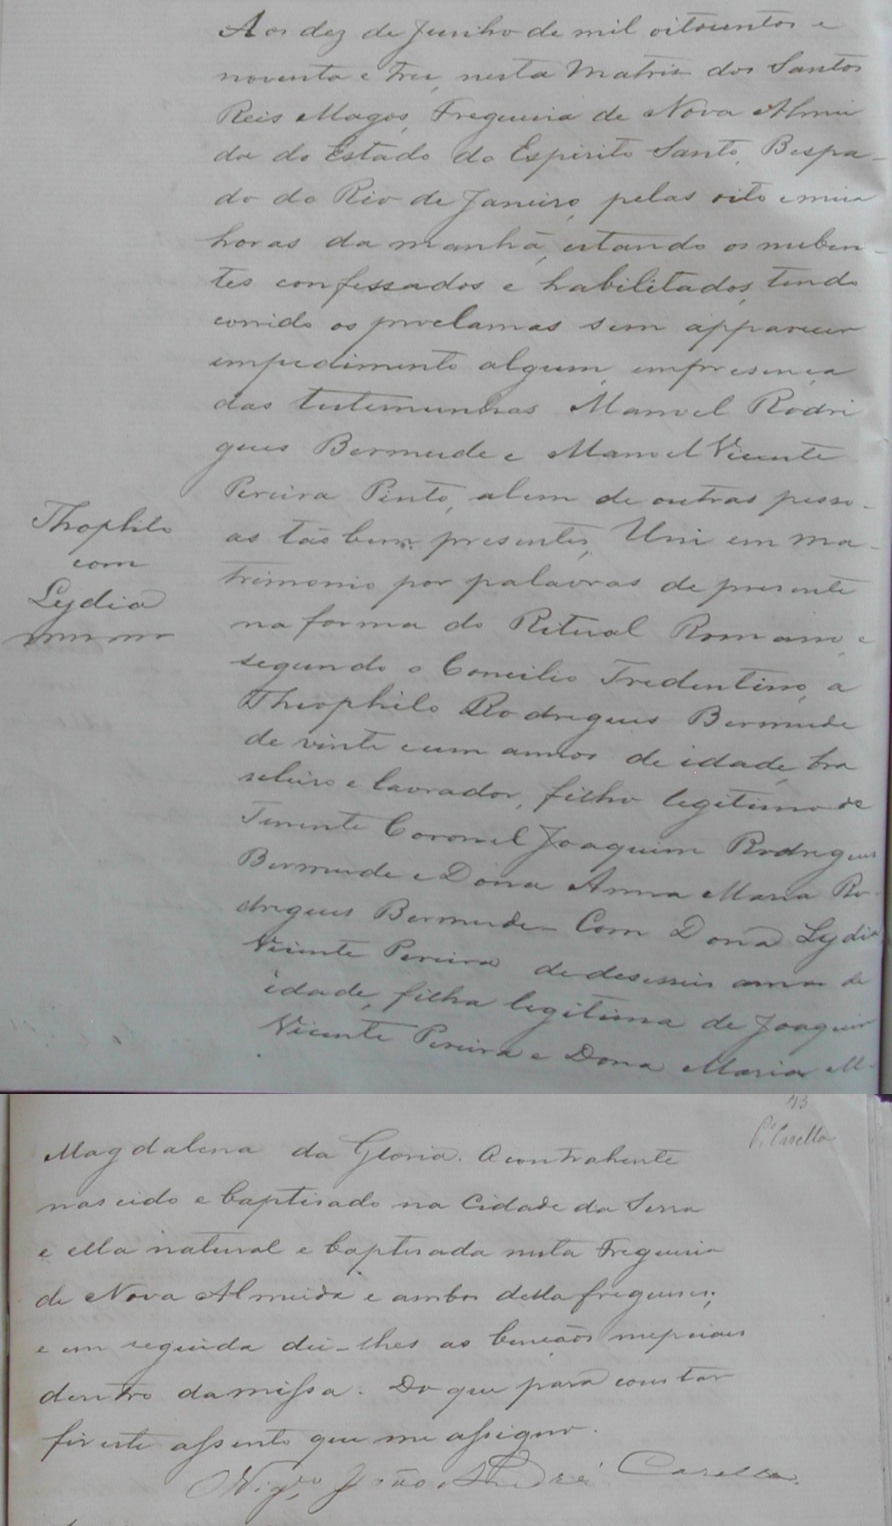 Aos dez de Junho de mil oitocentos e
noventa e tres, nesta Matriz dos Santos
Reis Magos, Freguesia de Nova Almei
da do Estado do Espirito Santo, Bispa-
do do Rio de Janeiro, pelas oito e meia
horas da manhã, estando os nuben-
tes confessados e habilitados, tendo
corrido os proclamas sem apparecer
impedimento algum, em presença
das testemunhas Manoel Rodri
gues Bermude e Manoel Vicente
Pereira Pinto, alem de outras pesso-
as tão bem presentes, Uni em ma-
trimonio por palavras de presente
na forma do Ritual Romano, e
segundo o Concilio Tredentino, a
Thophilo
com
Lydia
Theophilo Rodrigues Bermude
de vinte e um annos de idade, bra
seleiro e lavrador, filho legitimo de
Tenente Coronel Joaquim Rodrigues
Bermude e Dona Anna Maria Ro-
drigues Bermude - Com Dona Lydia
Vicente Pereira de desesseis annos de
idade, filha legitima de Joaquim
Vicente Pereira e Dona Maria M-
43
Pe. Casella
Magdalena da Gloria. O contrahente
nascido e baptisado na Cidade da Serra
e ella natural e baptisada nesta Freguesia
de Nova Almeida e ambos della fregueses;
e em seguida dei-lhes as bençãos nupciaes
dentro da missa. Do que para constar
fiz este assento que me assigno.
Vigro João André Casella